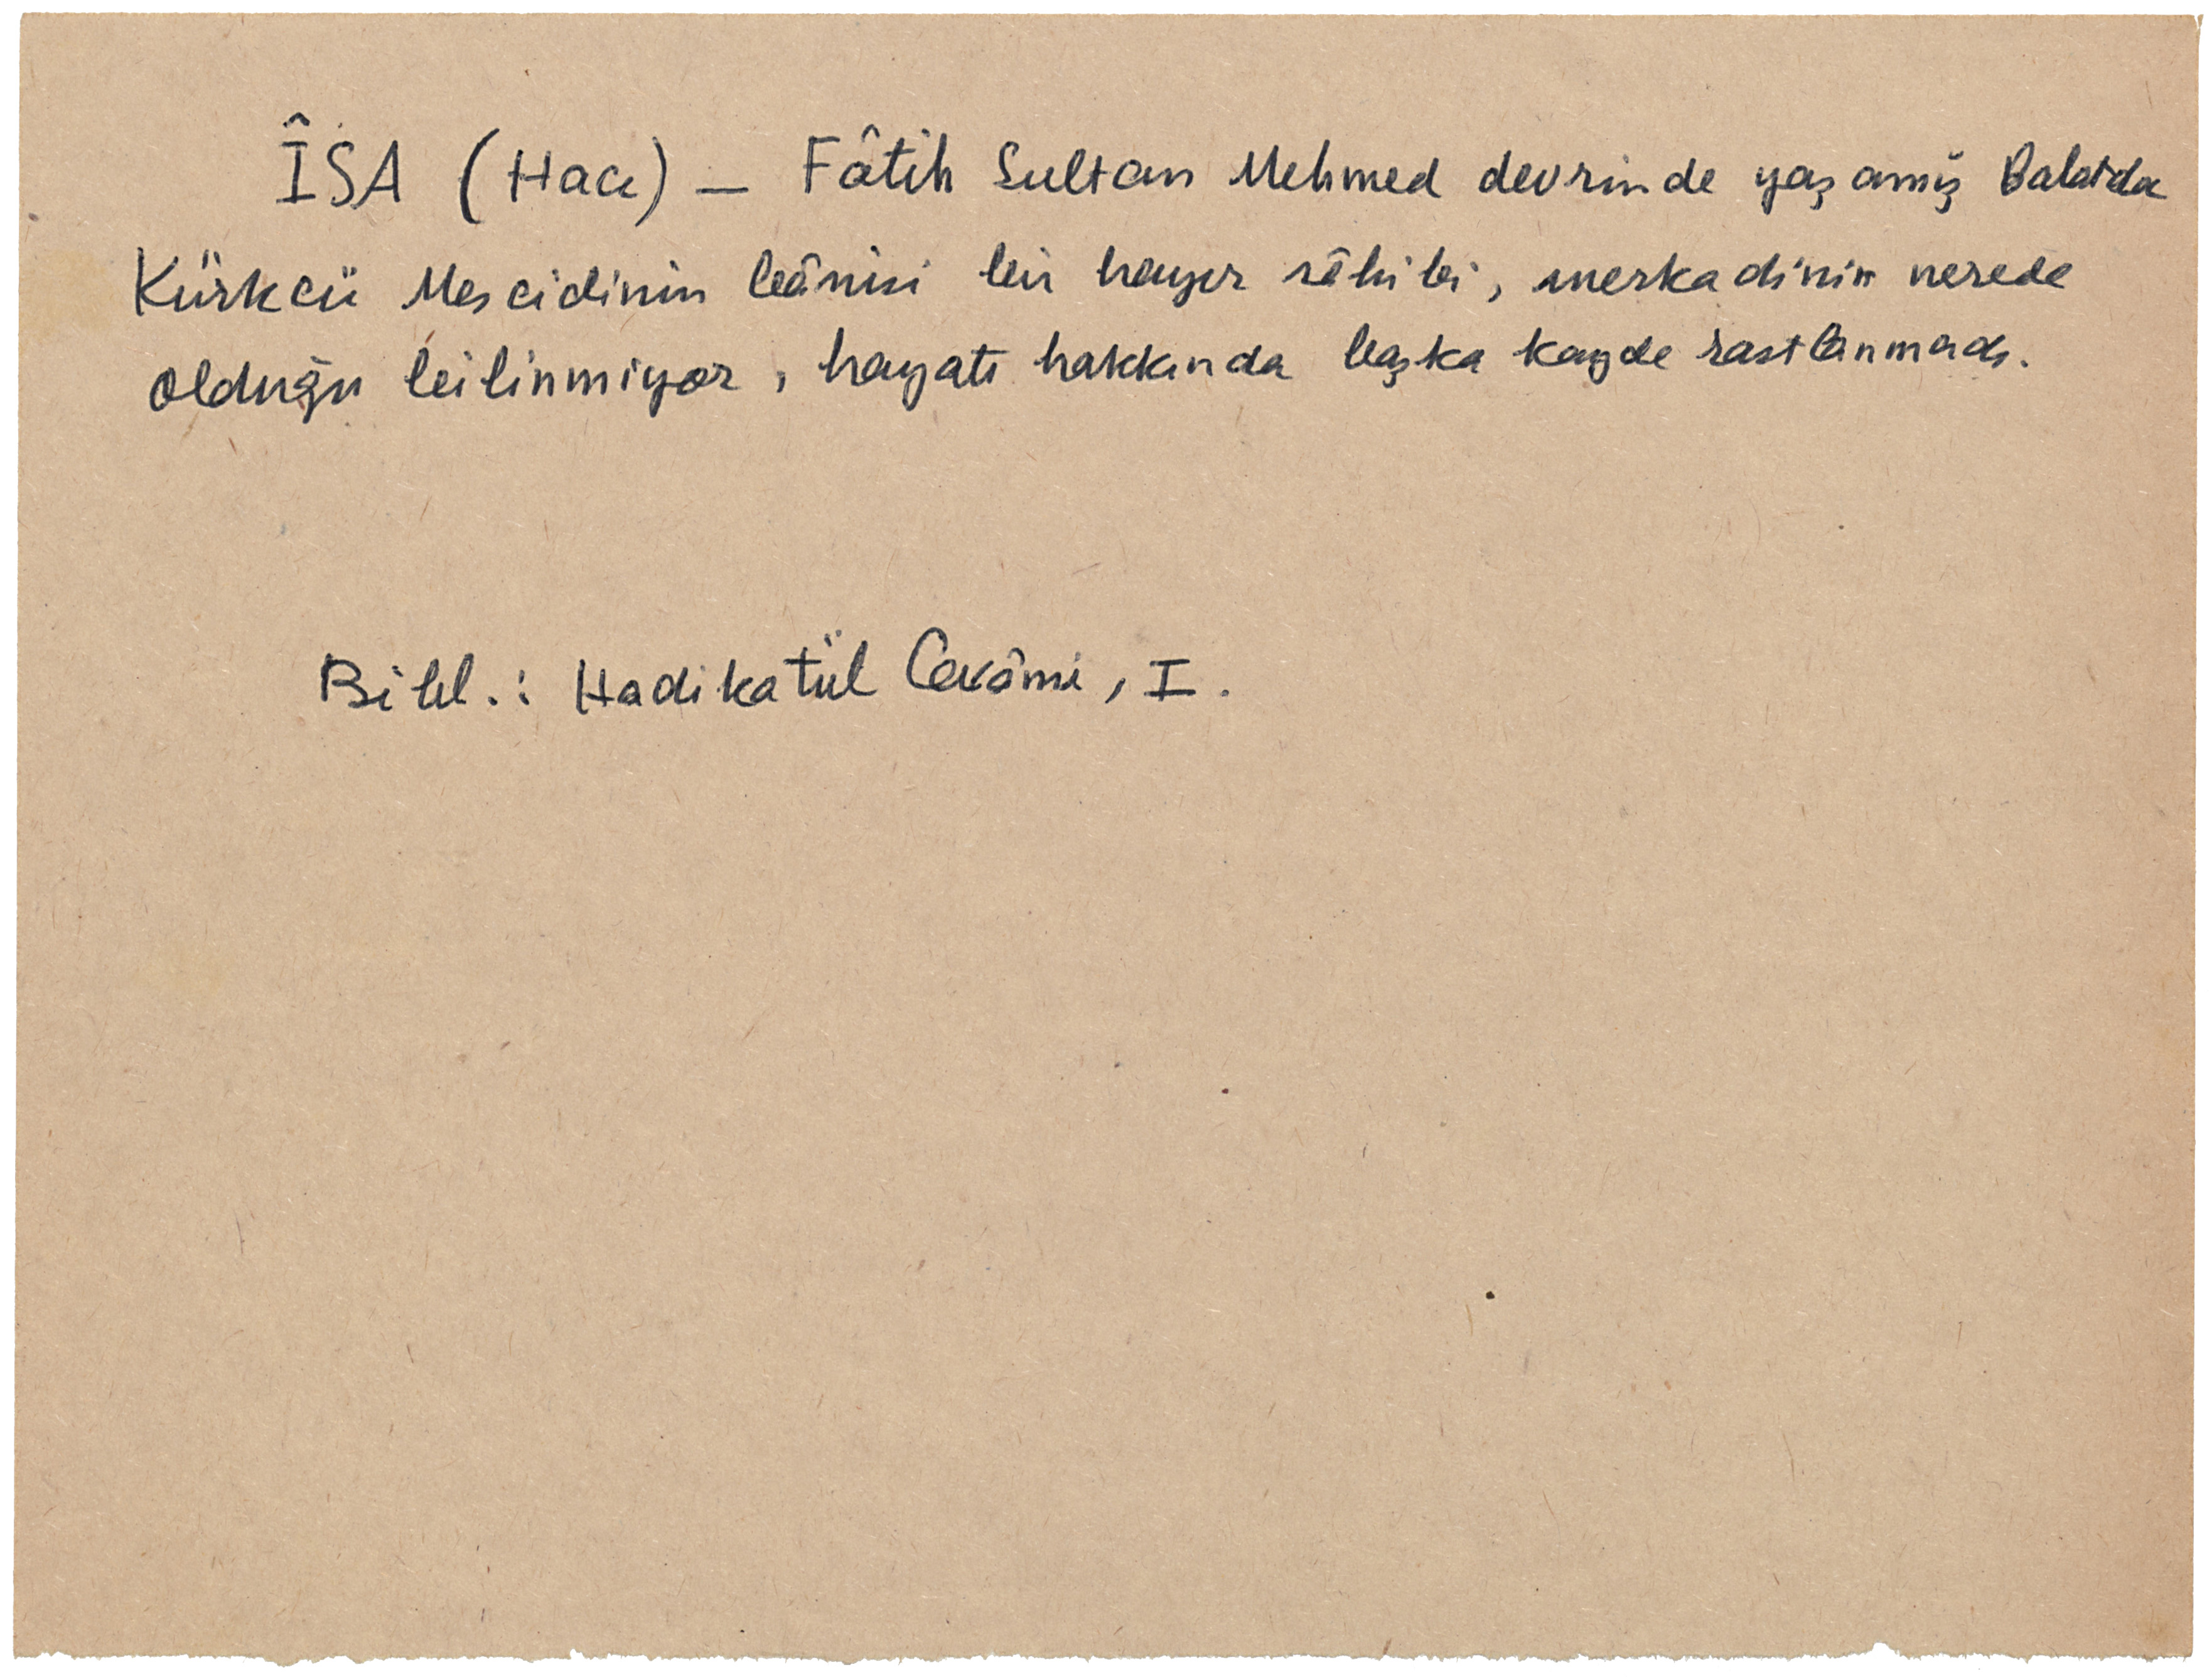 ÎSA (Hacı) — Fâtih Sultan Mehmed devrinde yaşamış Balatda
Kürkcü Mescidinin bânisi bir hayır sâhibi, merkadinin nerede
olduğu bilinmiyor, hayatı hakkında başka kayde rastlanmadı.
Bibl.: Hadikatül Cevâmi, I.